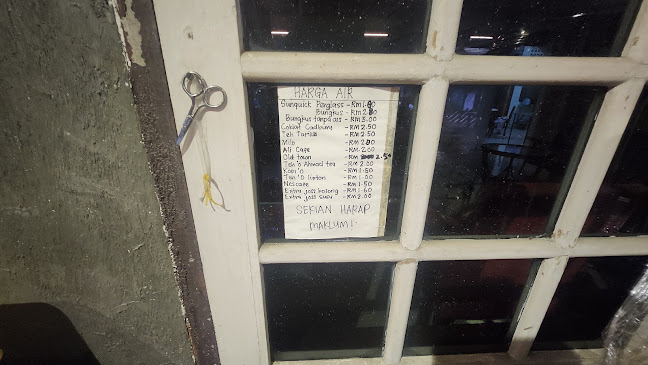 HARGA AIR
Sunquick Perglass - RM 1.00
Bungkus - RM 2.00
Bungkus tanpa ais - RM 3.00
Coklat Cadbury - RM 2.50
Teh Tarik - RM 2.50
Milo - RM 2.00
Ali Cafe - RM 2.00
Old town - RM 2.50
Teh 'O Ahmad tea - RM 2.00
Kopi 'O - RM 1.50
Teh 'O lipton - RM 1.00
Nescafe - RM 1.50
Extra joss kosong - RM 1.60
Extra joss susu - RM 2.00
SEKIAN HARAP
MAKLUM!